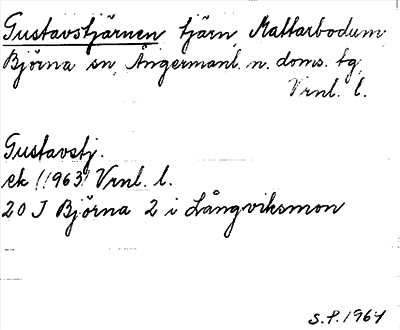 Gustavstjärnen tjärn, Mattarbodum,
Björna sn, Ångermanl. n. doms. tg,
Vrnl. l.
Gustavstj.
ek (1963) Vrnl. l.
20 J Björna 2 i Långviksmon
S.P. 1964